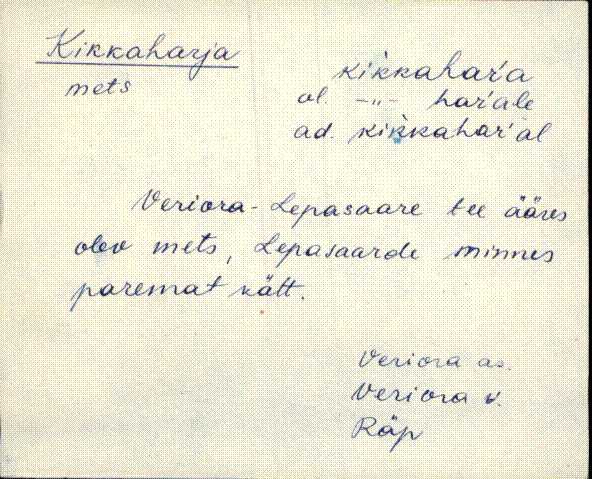 Kikkaharja
mets
kikkahaŕa
al. -"- haŕale
ad. kikkahaŕal
Veriora-Lepasaare tee ääres
olev mets, Lepasaarde minnes
paremat kätt.
Veriora as.
Veriora v.
Räp